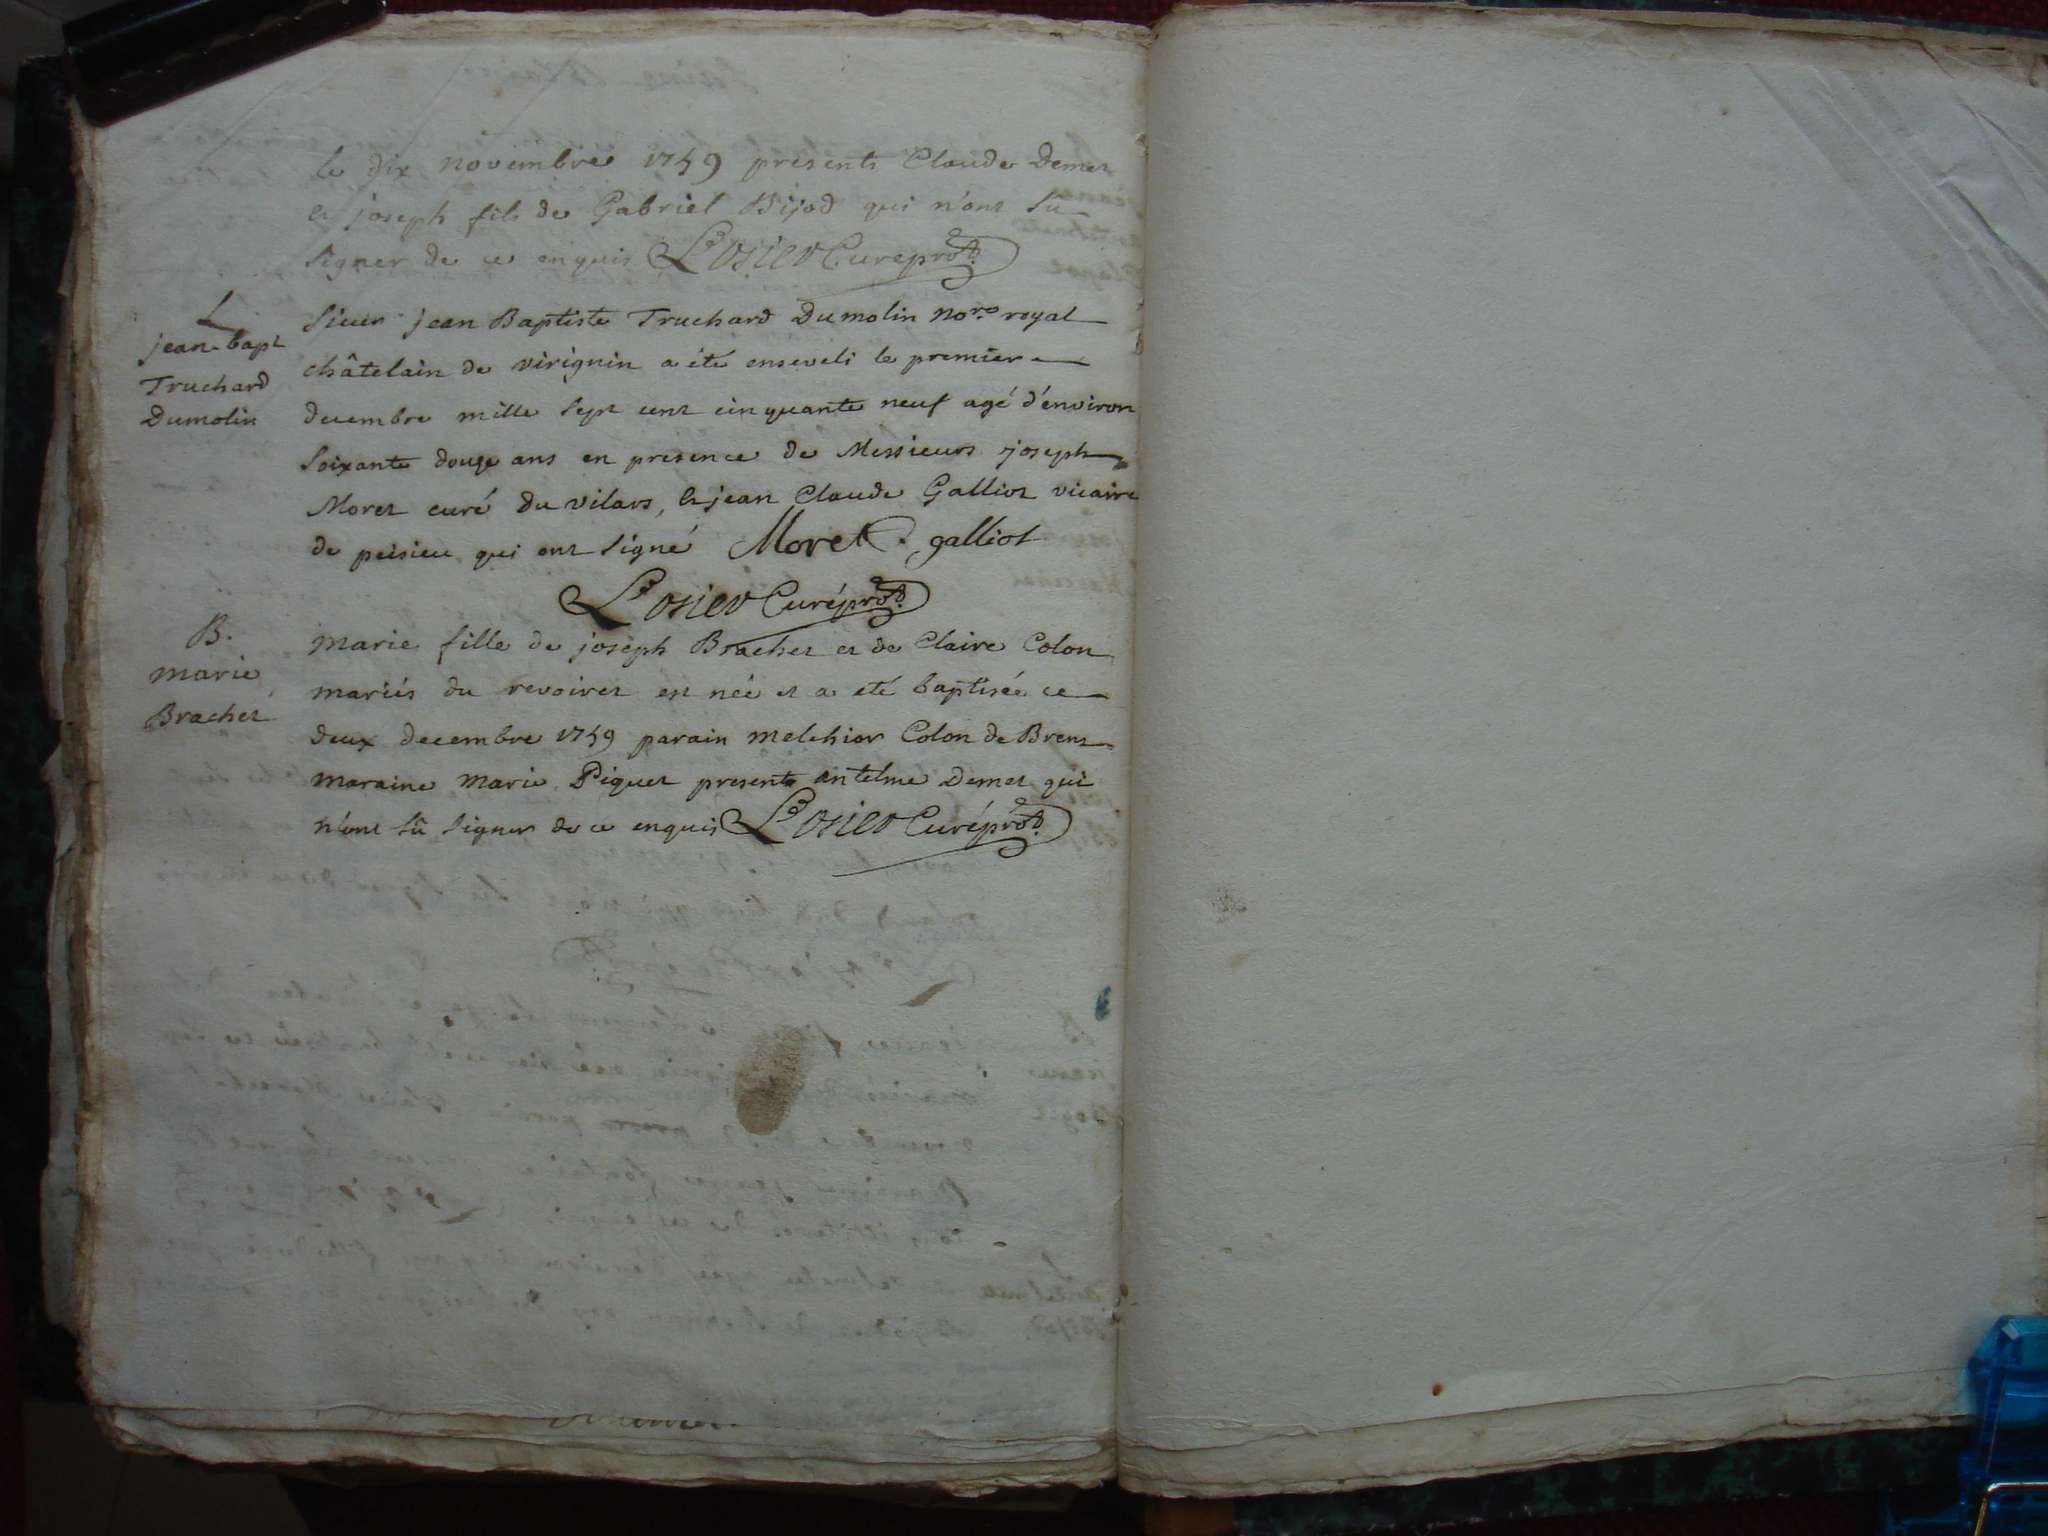 le dix novembre 1759 presents Claude Demet
et joseph fils de Gabriel Bijod qui n'ont sû
signer de ce enquis L'osier Curé prot.
L
jean-bapt
Truchard
Dumolin
sieur jean Baptiste Truchard Dumolin no.re royal
châtelain de virignin a été enseveli le premier
decembre mille sept cent cinquante neuf agé d'environ
soixante douze ans en presence de Messieurs joseph
Moret curé du vilars, et jean Claude Galliot vicaire
de peisieu qui ont signé Moret. galliot
L'osier Curé prot.
B.
marie
Brachet
marie fille de joseph Brachet et de Claire Colon
mariés du revoiret est née et a eté baptisée ce
deux decembre 1759 parain melchior Colon de Brens
maraine marie Piquet presents antelme Demet qui
n'ont sû signer de ce enquis L'osier Curé prot.